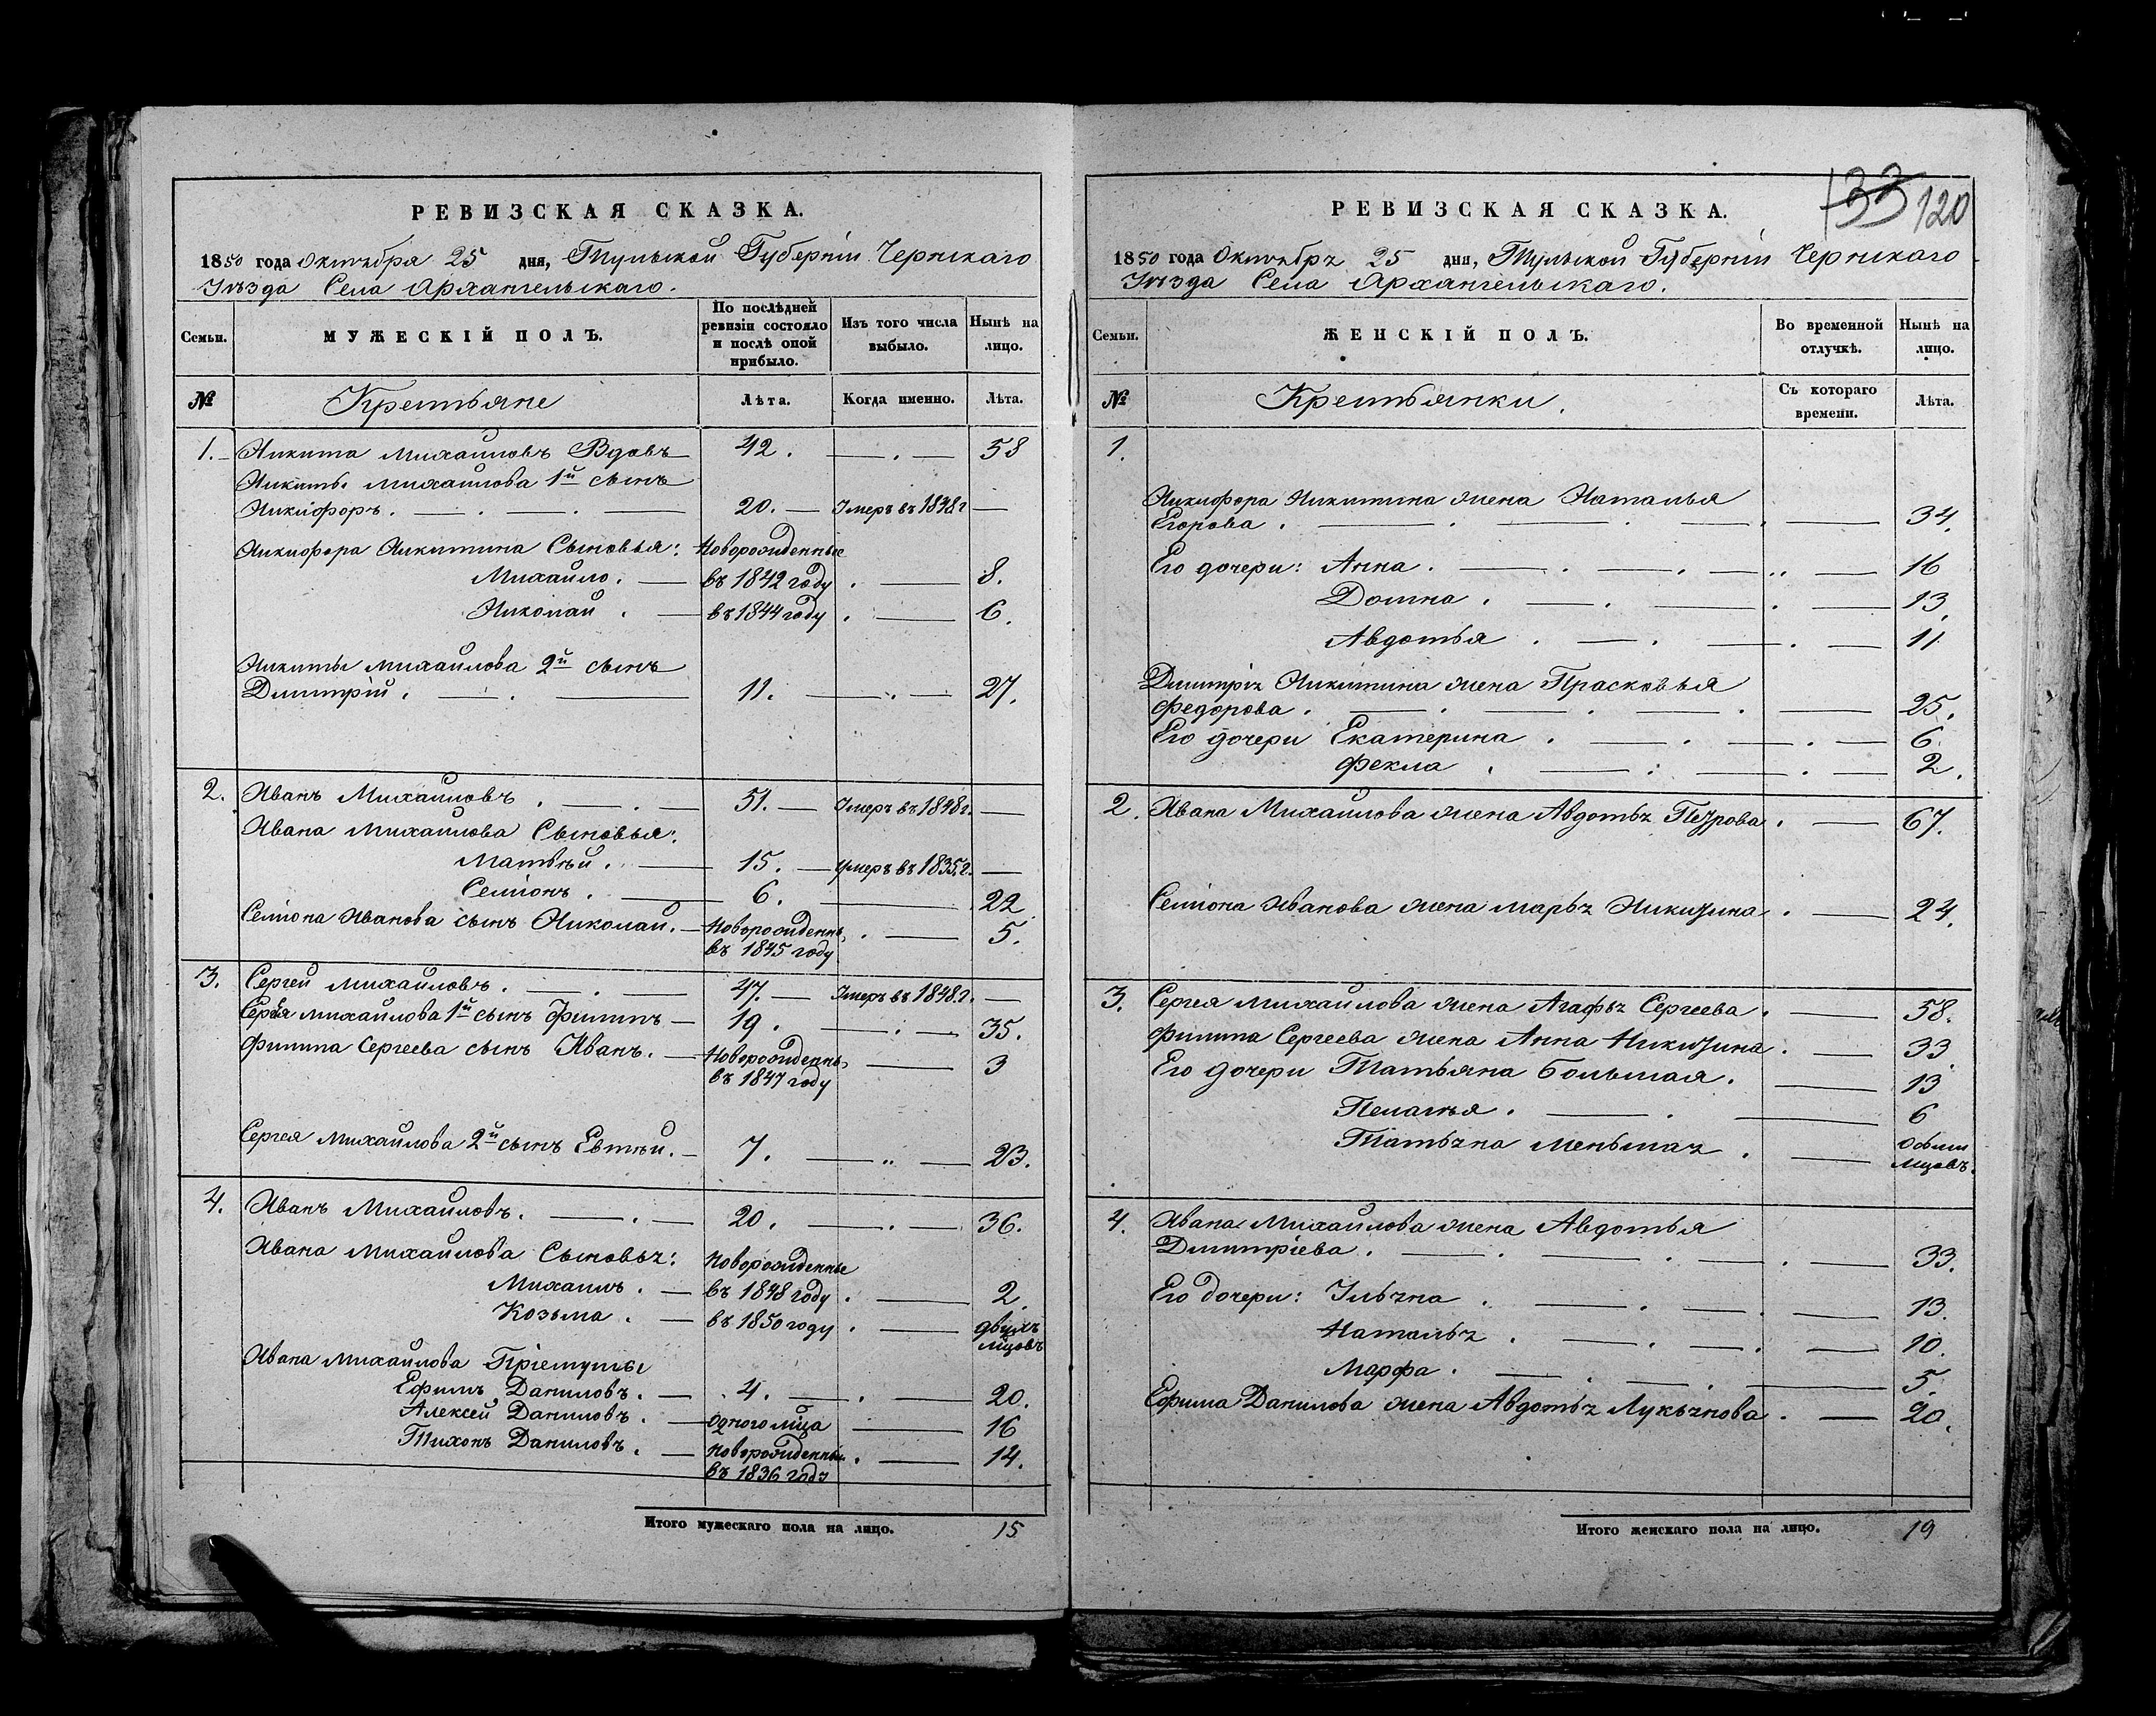 РЕВИЗСКАЯ СКАЗКА.
1850 года Октября 25 дня, Тульской Губерніи Чернскаго
Уѣзда Села Архангельскаго.
Семьи. МУЖЕСКІЙ ПОЛЪ. По послѣдней ревизіи состояло и послѣ оной прибыло. Изъ того числа выбыло. Нынѣ на лицо.
№ Крестьяне Лѣта. Когда именно. Лѣта.
1. Никита Михайловъ Вдовъ 42. 58
Никиты Михайлова 1й сынъ
Никифоръ. 20. Умеръ въ 1848 г
Никифора Никитина Сыновья: Новорожденные
Михайло. въ 1842 году 8.
Николай. въ 1844 году 6.
Никиты Михайлова 2й сынъ
Дмитрій. 11. 27.
2. Иванъ Михайловъ. 51. Умеръ въ 1848 г.
Ивана Михайлова Сыновья:
Матвѣй. 15. умеръ въ 1835 г.
Семіонъ. 6. 22
Семіона Иванова сынъ Николай. Новорожденны, 5.
въ 1845 году
3. Сергей Михайловъ. 47. Умеръ въ 1848 г.
Сергея Михайлова 1й сынъ Филипъ 19. 35.
Филипа Сергеева сынъ Иванъ. Новорожденны, 3
въ 1847 году
Сергея Михайлова 2й сынъ Евтѣй. 7. 23.
4. Иванъ Михайловъ. 20. 36.
Ивана Михайлова Сыновья: новорожденные
Михаилъ. въ 1848 году 2.
Козьма. въ 1850 году двухъ мцовъ
Ивана Михайлова Пріемушы
Ефимъ Даниловъ. 4. 20.
Алексей Даниловъ. одного мца 16
Тихонъ Даниловъ. новорожденны 14.
въ 1836 году
Итого мужескаго пола на лицо. 15
133 120
РЕВИЗСКАЯ СКАЗКА.
1850 года Октября 25 дня, Тульской Губерніи Чернскаго
Уѣзда Села Архангельскаго.
Семьи. ЖЕНСКІЙ ПОЛЪ. Во временной отлучкѣ. Нынѣ на лицо.
№ Крестьянки. Съ котораго времени. Лѣта.
1.
Никифора Никитина жена Наталья
Егорова. 34.
Его дочери: Анна. 16
Домна. 13
Авдотья. 11
Дмитрія Никитина жена Прасковья
Федорова. 25.
Его дочери Екатерина. 6
Фекла. 2.
2. Ивана Михайлова жена Авдотья Петрова. 67.
Семіона Иванова жена Марья Никитина. 24.
3. Сергея Михайлова жена Агафья Сергеева. 58.
Филипа Сергеева жена Анна Никитина. 33
Его дочери Татьяна Большая. 13
Пелагѣя. 6
Татьяна Меньшая. Осьми мцовъ.
4. Ивана Михайлова жена Авдотья
Дмитріева. 33.
Его дочери: Ульяна 13.
Наталья. 10.
Марфа. 5.
Ефима Данилова жена Авдотья Лукьянова. 20.
Итого женскаго пола на лицо. 19